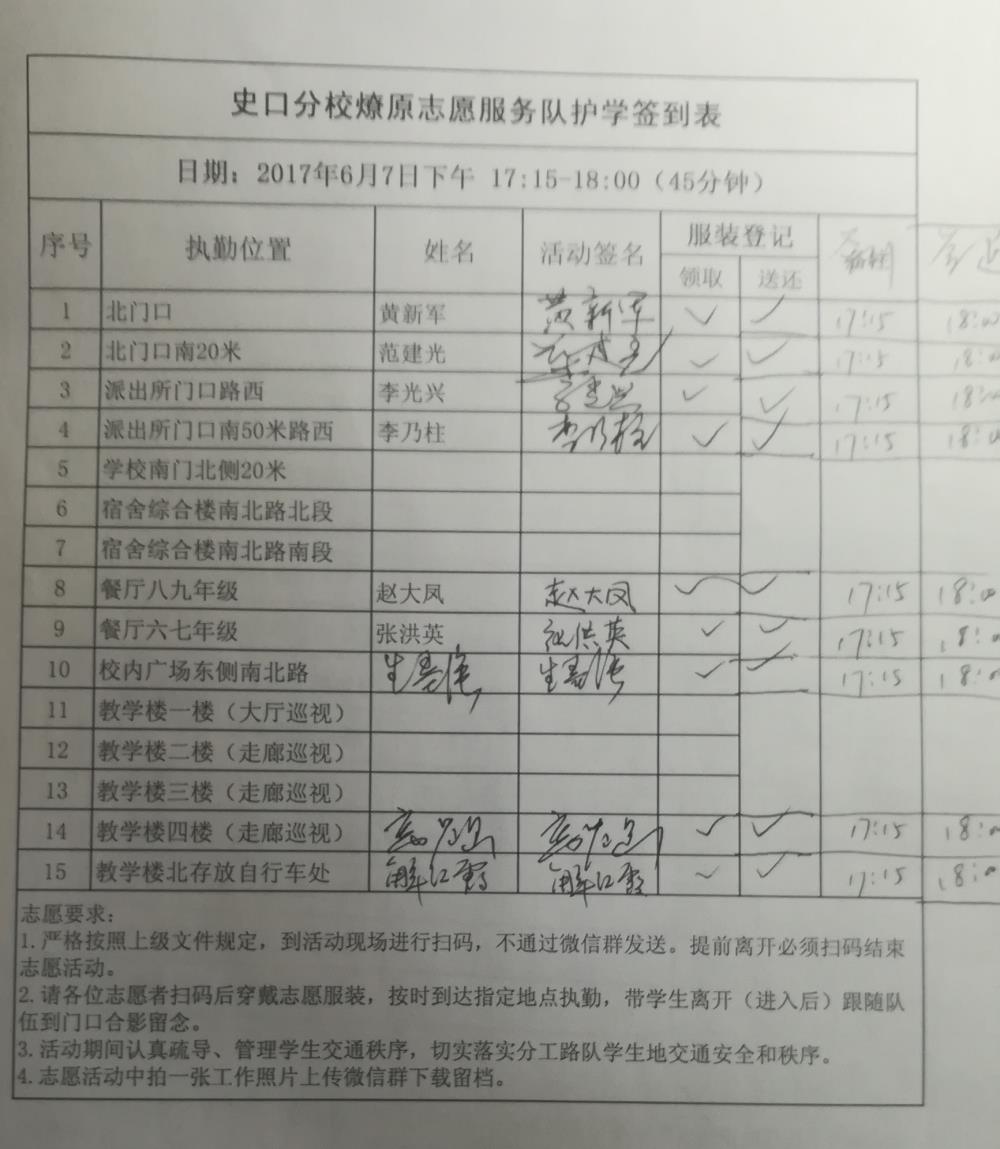 史口分校燎原志愿服务队护学签到表
日期：2017年6月7日下午 17:15-18:00（45分钟）
序号 执勤位置 姓名 活动签名 服装登记
领取 送还
1 北门口 黄新军 黄新军 ✓ ✓ 17:15 18:00
2 北门口南20米 范建光 范建光 ✓ ✓ 17:15 18:00
3 派出所门口路西 李光兴 李光兴 ✓ ✓ 17:15 18:00
4 派出所门口南50米路西 李乃柱 李乃柱 ✓ ✓ 17:15 18:00
5 学校南门北侧20米
6 宿舍综合楼南北路北段
7 宿舍综合楼南北路南段
8 餐厅八九年级 赵大凤 赵大凤 ✓ ✓ 17:15 18:00
9 餐厅六七年级 张洪英 张洪英 ✓ ✓ 17:15 18:00
10 校内广场东侧南北路 ✓ ✓ 17:15 18:00
11 教学楼一楼（大厅巡视）
12 教学楼二楼（走廊巡视）
13 教学楼三楼（走廊巡视）
14 教学楼四楼（走廊巡视） ✓ ✓ 17:15 18:00
15 教学楼北存放自行车处 解江霞 解江霞 ✓ ✓ 17:15 18:00
志愿要求：
1.严格按照上级文件规定，到活动现场进行扫码，不通过微信群发送。提前离开必须扫码结束
志愿活动。
2.请各位志愿者扫码后穿戴志愿服装，按时到达指定地点执勤，带学生离开（进入后）跟随队
伍到门口合影留念。
3.活动期间认真疏导、管理学生交通秩序，切实落实分工路队学生地交通安全和秩序。
4.志愿活动中拍一张工作照片上传微信群下载留档。